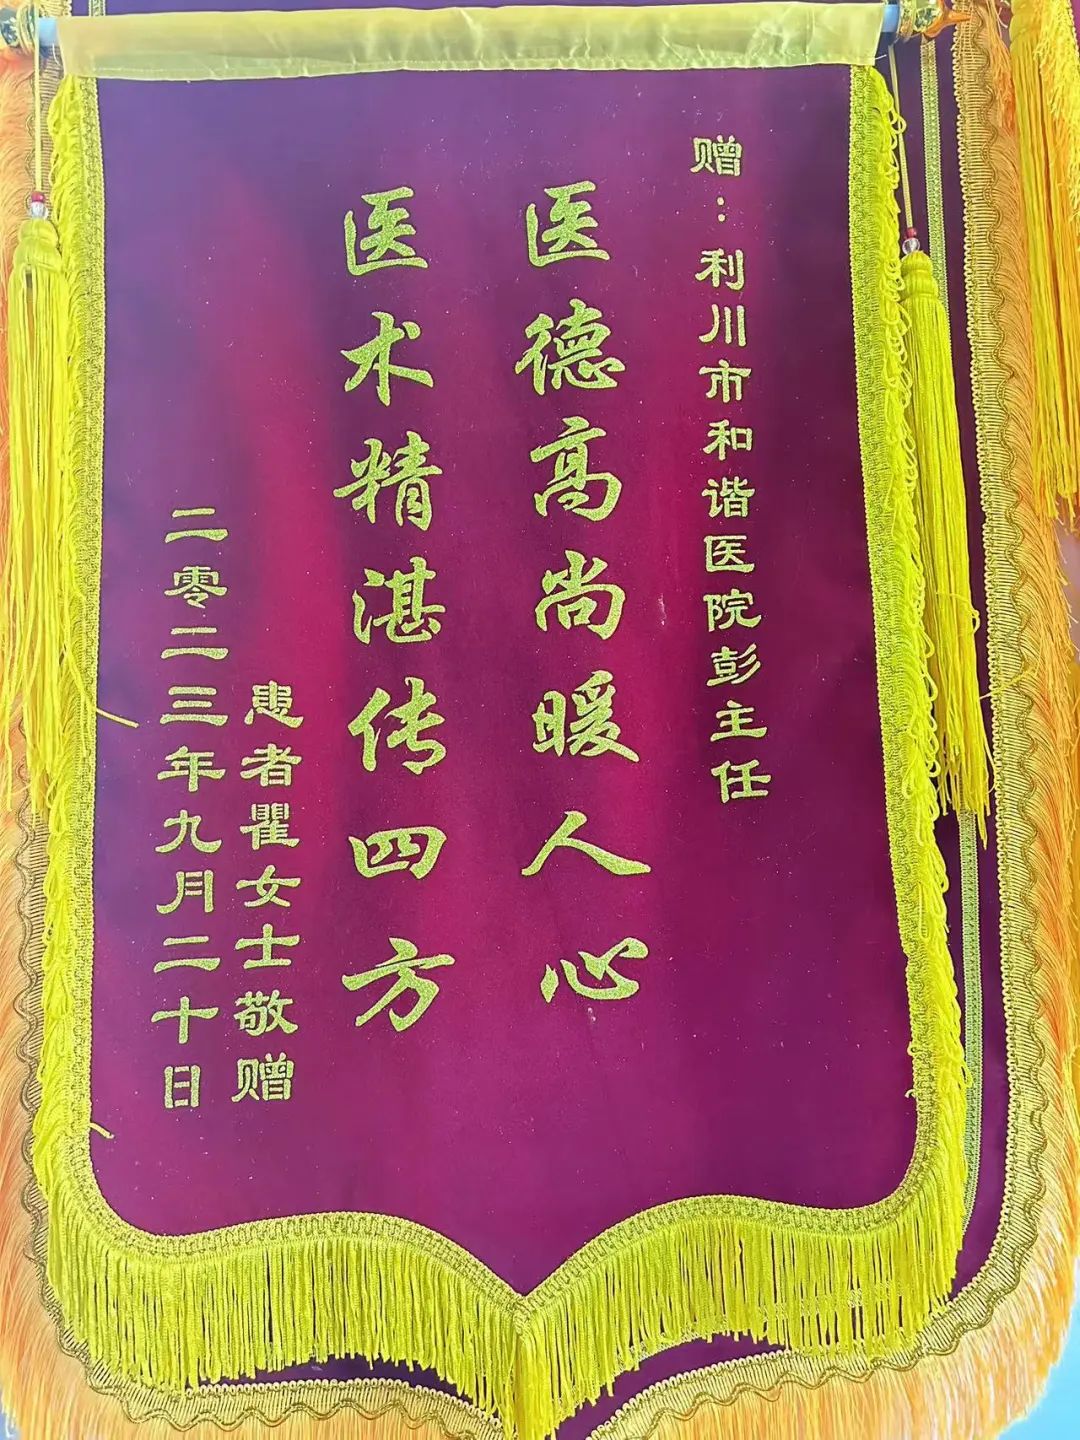 赠：利川市和谐医院彭主任
医德高尚暖人心
医术精湛传四方
患者瞿女士敬赠
二零二三年九月二十日